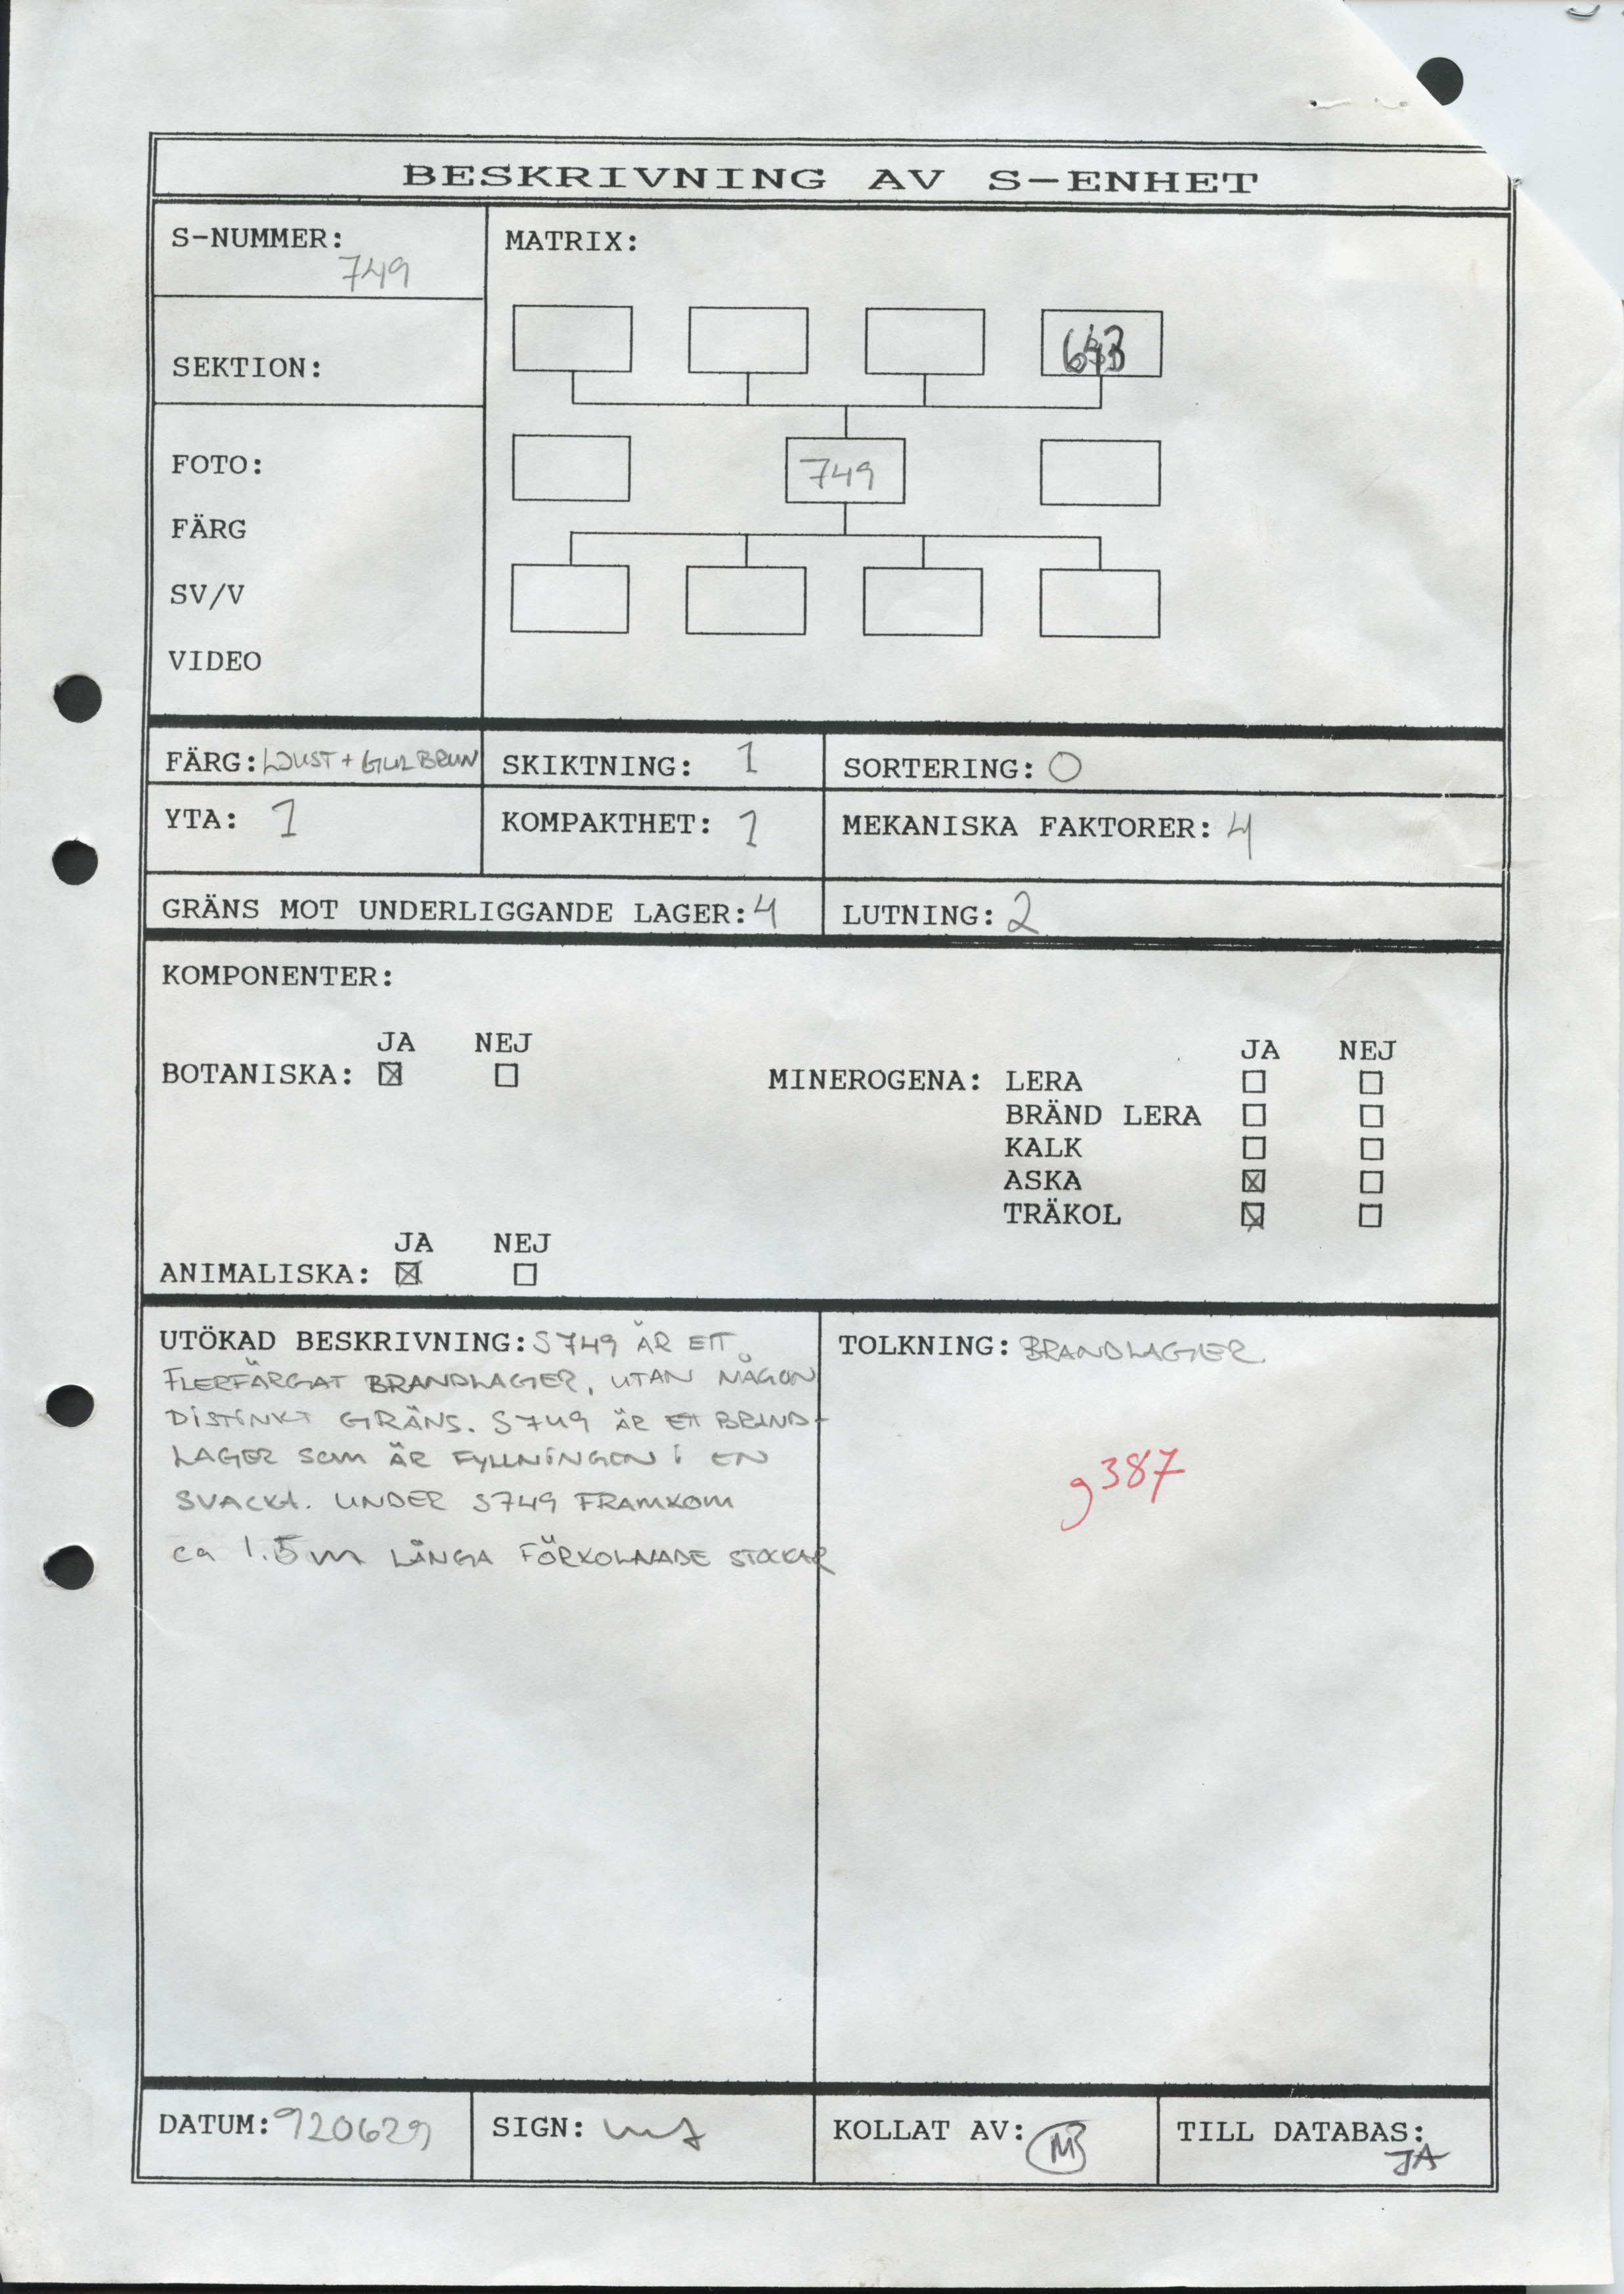 BESKRIVNING AV S-ENHET
S-NUMMER:
749
MATRIX:
SEKTION:
749
FOTO:
FÄRG
SV/V
VIDEO
FÄRG: LJUST + GULBRUN
SKIKTNING: 1
SORTERING: 0
YTA: 1
KOMPAKTHET: 1
MEKANISKA FAKTORER: 4
GRÄNS MOT UNDERLIGGANDE LAGER: 4
LUTNING: 2
KOMPONENTER:
JA NEJ
BOTANISKA: ☒ ☐
JA NEJ
MINEROGENA: LERA ☐ ☐
BRÄND LERA ☐ ☐
KALK ☐ ☐
ASKA ☒ ☐
TRÄKOL ☒ ☐
JA NEJ
ANIMALISKA: ☒ ☐
UTÖKAD BESKRIVNING: S749 ÄR ETT
FLERFÄRGAT BRANDLAGER, UTAN NÅGON
DISTINKT GRÄNS. S749 ÄR ETT BRAND-
LAGER SOM ÄR FYLLNINGEN I EN
SVACKA. UNDER S749 FRAMKOM
ca 1.5 m LÅNGA FÖRKOLNADE STOCKAR
TOLKNING: BRANDLAGER
g387
DATUM: 920629
SIGN:
KOLLAT AV: MB
TILL DATABAS:
JA